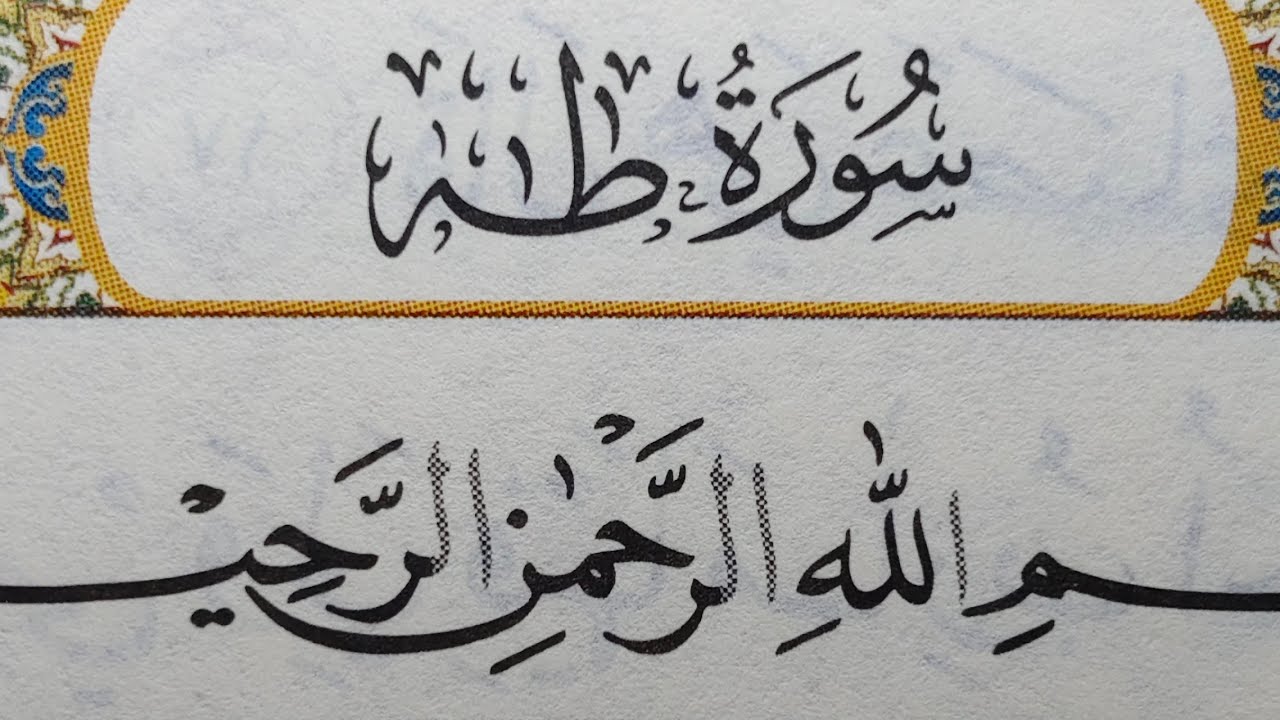 سُورَةُ طٰهٰ
ـسمِ اللّٰهِ الرَّحْمٰنِ الرَّحِيـ